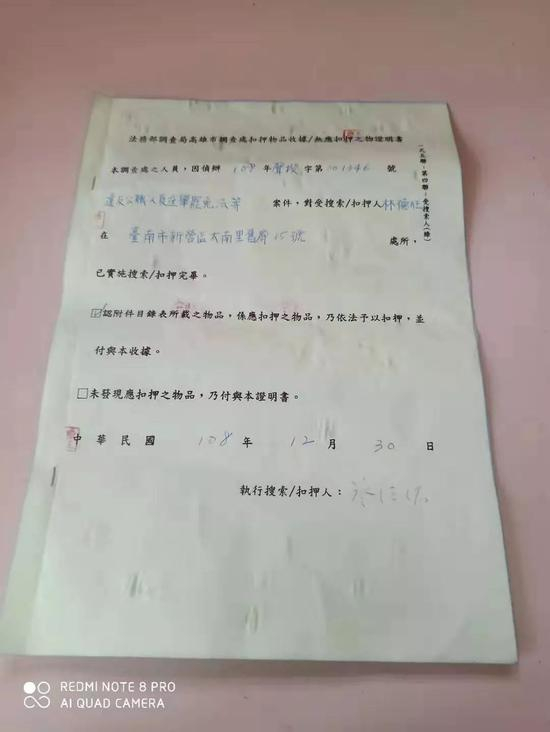 法務部調查局高雄市調查處扣押物品收據/無應扣押之物證明書
一式五聯:第四聯:受搜索人(綠)
本調查處之人員,因偵辦 108 年聲搜字第001346號
違反公職人員選舉罷免法等 案件,對受搜索/扣押人林億
在 臺南市新營區太南里舊廍15號 處所,
已實施搜索/扣押完畢。
☑認附件目錄表所載之物品,係應扣押之物品,乃依法予以扣押,並
付與本收據。
□未發現應扣押之物品,乃付與本證明書。
中華民國 108 年 12 月 30 日
執行搜索/扣押人:
REDMI NOTE 8 PRO
AI QUAD CAMERA